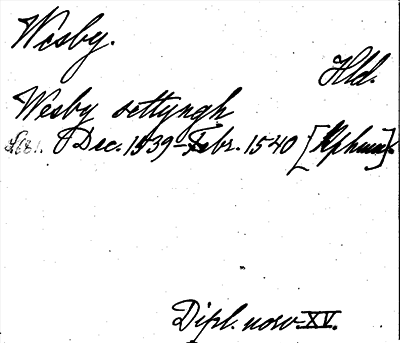 Wesby.
Hld.
Wesby settyngh
S. 681. Dec. 1539-Febr. 1540 [Kphmn].
Dipl. norv XV.